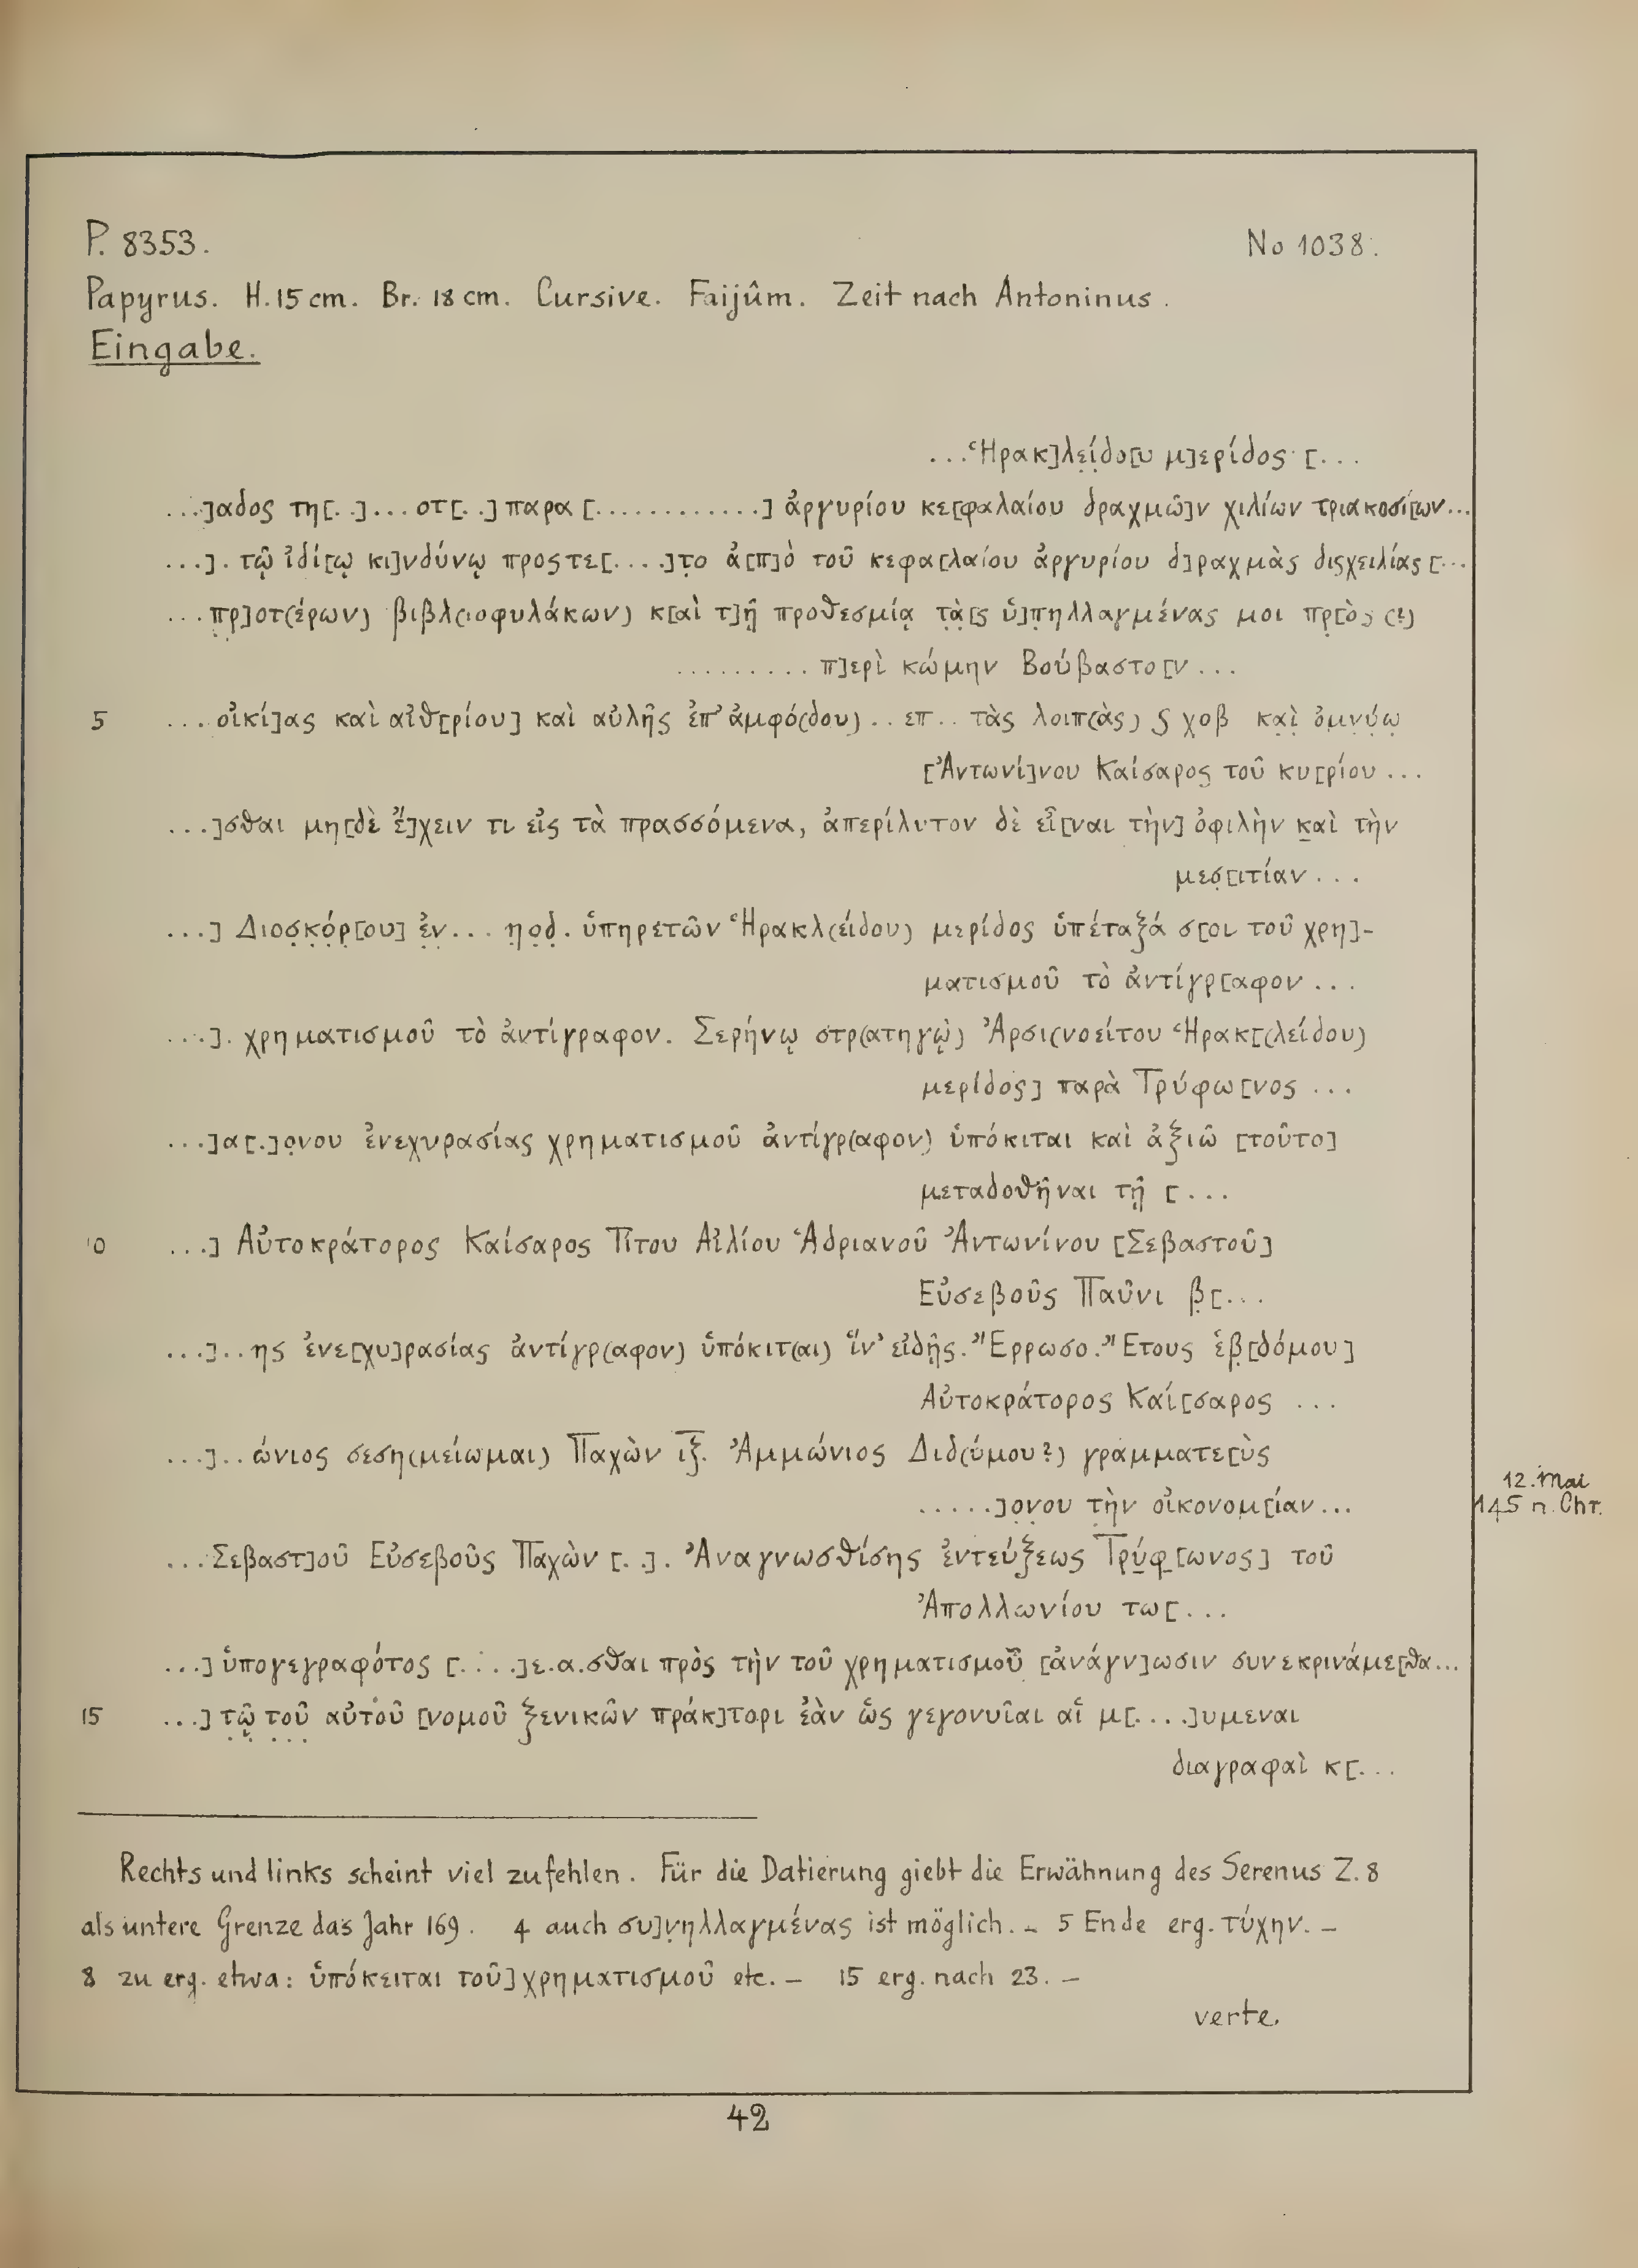 P. 8353. No 1038.
Papyrus. H. 15 cm. Br. 18 cm. Cursive. Faijûm. Zeit nach Antoninus.
Eingabe.
...Ἡρακ]λε̣ί̣δο[υ μ]ερίδος [...
...]αδος τη[..]...οτ[..] παρα [............] ἀργυρίου κε[φαλαίου δραχμῶ]ν χιλίων τριακοσί[ων...
...]. τῷ ἰδί[ῳ κι]νδύνῳ προςτε[....]τ̣ο ἀ[π]ὸ τοῦ κεφα[λαίου ἀργυρίου δ]ραχμὰς διςχειλίας [...
...π̣ρ̣]οτ(έρων) βιβλ(ιοφυλάκων) κ[αὶ τ]ῇ προθεσμίᾳ τ̣ὰ̣[ς ὑ]π̣ηλλαγμένας μοι πρ̣[ὸς (?)
.........π]ερὶ κώμην Βούβαστο[ν...
5 ...οἰκί]ας καὶ αἰθ[ρίου] καὶ αὐλῆς ἐπ' ἀμφό(δου)..επ.. τὰς λοιπ(ὰς) ʃ χοβ κα̣ὶ̣ ὀμν̣ύ̣ω̣
[Ἀντωνί]νου Καίσαρος τοῦ κυ[ρίου...
...]σθαι μη[δὲ ἔ]χειν τι εἰς τὰ πρασσόμενα, ἀπερίλυτον δὲ εἶ[ναι τὴν] ὀφιλὴν καὶ τὴν
μεσ̣[ιτίαν...
...] Διοσ̣κ̣ό̣ρ̣[ου] ἐ̣ν̣... η̣ο̣δ̣. ὑπηρετῶν Ἡρακλ(είδου) μερίδος ὑπέταξά σ[οι τοῦ χρη]-
ματισμοῦ τὸ ἀντίγρ[αφον...
...]. χρηματισμοῦ τὸ ἀντίγραφον. Σερήνῳ στρ(ατηγῷ) Ἀρσι(νοείτου Ἡρακ[(λείδου)
μερίδος] παρὰ Τρύφω[νος...
...]α[.]ο̣νου ἐνεχυρασίας χρηματισμοῦ ἀντίγρ(αφον) ὑπόκιται καὶ ἀξιῶ [τοῦτο]
μεταδοθῆναι τῇ [...
10 ...] Αὐτοκράτορος Καίσαρος Τίτου Αἰλίου Ἁδριανοῦ Ἀντωνίνου [Σεβαστοῦ]
Εὐσεβοῦς Παῦνι β̣[...
...]..ης ἐνε[χυ]ρασίας ἀντίγρ(αφον) ὑπόκιτ(αι) ἵν' εἰδῇς. Ἔρρωσο. Ἔτους ἑβ̣[δόμου]
Αὐτοκράτορος Καί[σαρος ...
...]..ώνιος σεση(μείωμαι) Παχὼν ιξ̅. Ἀμμώνιος Διδ(ύμου?) γραμματε[ὺς
.....]ο̣ν̣ου τ̣ὴν οἰκονομ[ίαν...
12. Mai
145 n. Chr.
...Σεβαστ]οῦ Εὐσεβοῦς Παχὼν [..]. Ἀναγνωσθίσης ἐντεύξεως Τρύφ[ωνος] τοῦ
Ἀπολλωνίου τω[...
...] ὑπογεγραφότος [....]ε.α.σθαι πρὸς τὴν τοῦ χρηματισμοῦ [ἀνάγν]ωσιν συνεκρινάμε[θα...
15 ...] τ̣ῷ̣ τ̣ο̣ῦ̣ αὐτοῦ [νομοῦ ξενικῶν πράκ]τορι ἐὰν ὡς γεγονυῖαι αἱ μ[....]υμεναι
διαγραφαὶ κ[...
Rechts und links scheint viel zu fehlen. Für die Datierung giebt die Erwähnung des Serenus Z. 8
als untere Grenze das Jahr 169. 4 auch συ]ν̣ηλλαγμένας ist möglich. – 5 Ende erg. τύχην. –
8 zu erg. etwa: ὑπόκειται τοῦ] χρηματισμοῦ etc. – 15 erg. nach 23. –
verte.
42